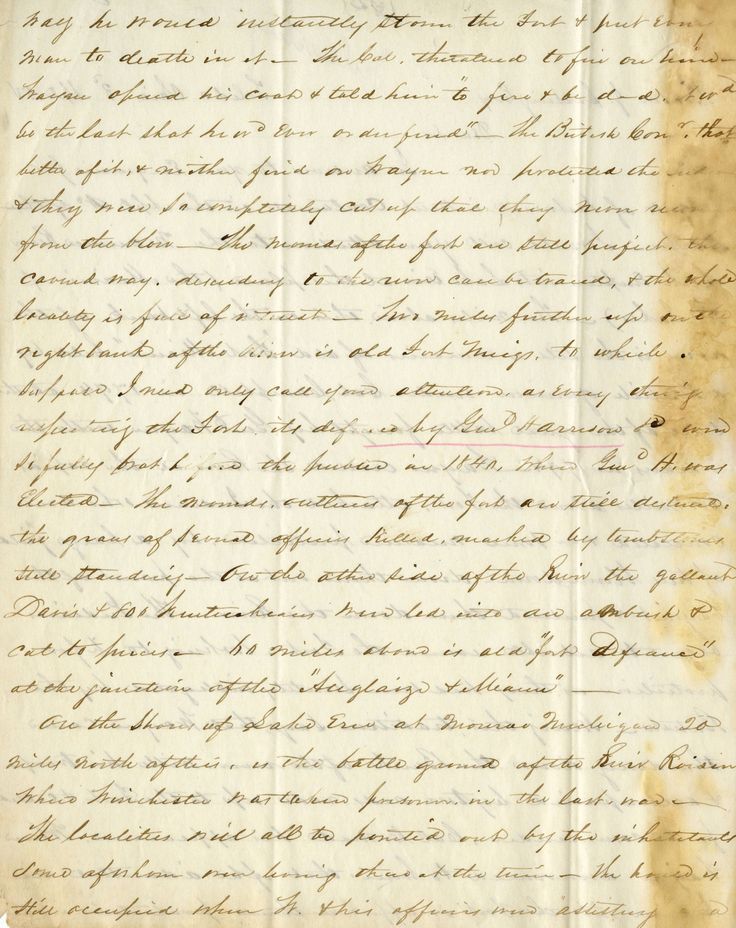 way he would instantly storm the Fort & put every
man to death in it – The Col. threatened to fire on him –
Wayne opened his coat & told him "to fire & be d–d. it wd
be the last shot he wd ever order fired" – The British Comr. thot
better of it, & neither fired on Wayne nor protected the
& they were so completely cut up that they never
from the blow – The mounds of the fort are still perfect. the
covered way. descending to the river can be traced, & the whole
locality is full of interest – Two miles further up on the
right bank of the river is old Fort Meigs, to which
suppose I need only call your attention, as every thing
respecting the Fort its defence by Genl Harrison &c were
so fully brot before the public in 1840, when Genl H. was
Elected – The mounds, outlines of the fort are still distinct,
the graves of several officers killed, marked by tombstones
still standing – On the other side of the River the gallant
Davis & 800 Kentuckians were led into an ambush &
cut to pieces – 60 miles above is old "fort Defiance"
at the junction of the "Auglaize & Miami" –
On the Shores of Lake Erie at Monroe Michigan 20
miles north of this, is the battle ground of the River Raisin
where Winchester was taken prisoner in the last war –
The localities will all be pointed out by the inhabitants
some of whom were living there at the time – the house is
still occupied where W. & his officers were